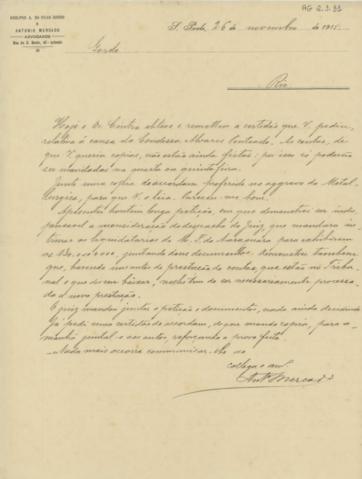 AG 2.3.33
ADOLPHO A. DA SILVA GORDO
E
ANTONIO MERCADO
ADVOGADOS
S. Paulo, 26 de novembro de 1915
Gordo
Rio
Hoje o Dr. Cintra obteve e remetteu a certidão que V. pediu,
relativa á causa da Condessa Alvares Penteado. As contas, de
que V. queria copias, não estão ainda feitas; por isso só poderão
ser mandadas na quarta ou quinta feira.
Junto uma copia do accordam proferido no aggravo da Metal-
lurgica, para que V. o leia. Parece-me bom.
Apresentei hontem longa petição, em que demonstrei ser inde
a reconsideração do despacho do Juiz que mandara in-
timar os liquidatarios de Araraquara para exhibirem
os juntando dous documentos. Demonstrei tambem
que, havendo umas contas de prestação de contas que estão no Tribu-
nal e que devem baixar, nestes tem de ser necessariamente processa-
da a nova prestação.
O juiz mandou juntar a petição e documentos, nada ainda decidindo
Já pedi uma certidão do accordam, de que mando copia, para a-
manhã juntal-o aos autos, reforçando a prova feita.
Nada mais occorre communicar-lhe o
collega e amº
Antº Mercado